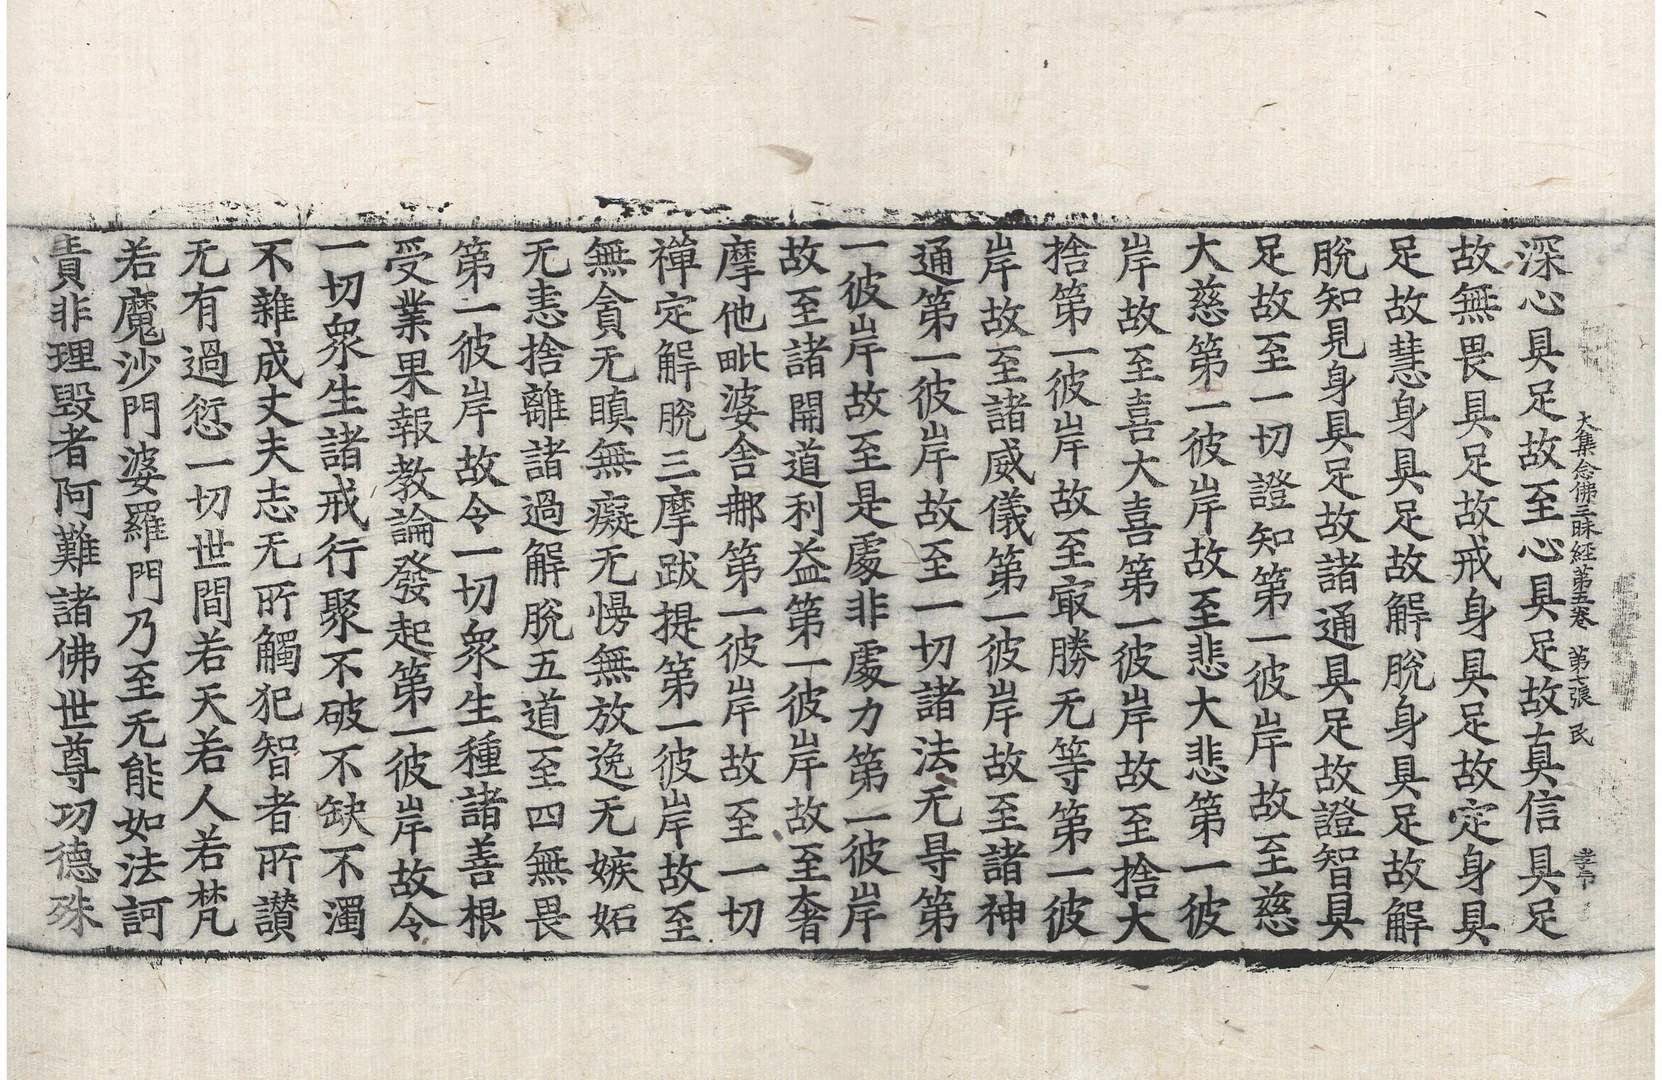 大集念佛三昧經第五卷　第七張　民
深心具足故至心具足故真信具足
故無畏具足故戒身具足故定身具
足故慧身具足故解脫身具足故解
脫知見身具足故諸通具足故證智具
足故至一切證知第一彼岸故至慈
大慈第一彼岸故至悲大悲第一彼
岸故至喜大喜第一彼岸故至捨大
捨第一彼岸故至㝡勝无等第一彼
岸故至諸威儀第一彼岸故至諸神
通第一彼岸故至一切諸法无㝵第
一彼岸故至是處非處力第一彼岸
故至諸開道利益第一彼岸故至奢
摩他毗婆舍那第一彼岸故至一切
禪定解脫三摩跋提第一彼岸故至
無貪无瞋無癡无慢無放逸无嫉妬
无恚捨離諸過解脫五道至四無畏
第一彼岸故令一切衆生種諸善根
受業果報教論發起第一彼岸故令
一切衆生諸戒行聚不破不缺不濁
不雜成丈夫志无所觸犯智者所讃
无有過愆一切世間若天若人若梵
若魔沙門婆羅門乃至无能如法訶
責非理毀者阿難諸佛世尊功德殊